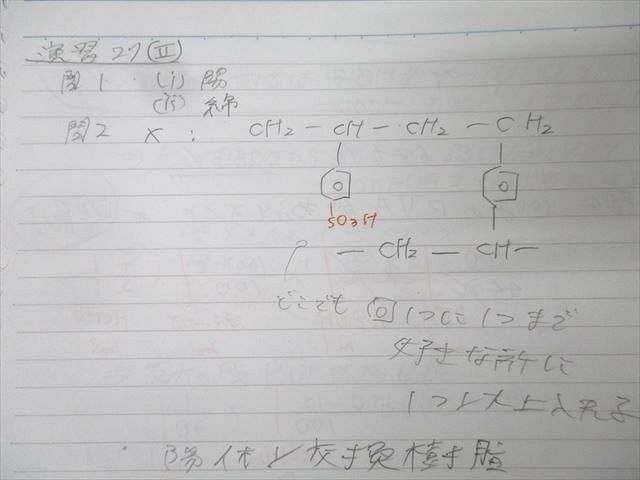 演習27(Ⅱ)
問1 (i) 陽
(ii) 綿
問2 X : CH2 - CH - CH2 - CH2
SO3H
- CH2 - CH -
どこでも 1つに1つまで
好きな所に
1つ以上入れる
陽イオン交換樹脂